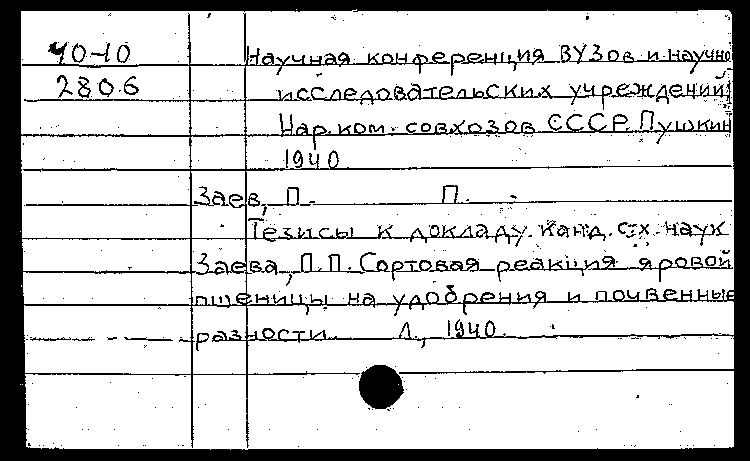 40-10 Научная конференция ВУЗов и научно
2806 исследовательских учреждений
Нар. ком. совхозов СССР. Пушкин
1940
Заев, П. П.
Тезисы к докладу канд. с.-х. наук
Заева, П.П. Сортовая реакция яровой
пшеницы на удобрения и почвенные
разности. Л., 1940.